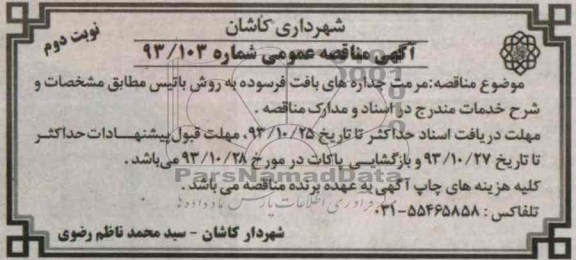 شهرداری کاشان
نوبت دوم
آگهی مناقصه عمومی شماره ۹۳/۱۰۳
موضوع مناقصه:مرمت جداره های بافت فرسوده به روش باتیس مطابق مشخصات و
شرح خدمات مندرج در اسناد و مدارک مناقصه .
مهلت دریافت اسناد حداکثر تا تاریخ ۹۳/۱۰/۲۵، مهلت قبول پیشنهـــادات حداکثـر
تا تاریخ ۹۳/۱۰/۲۷ و بازگشایـی پاکات در مورخ ۹۳/۱۰/۲۸ می‌باشد .
ParsNamadData
کلیه هزینه های چاپ آگهی به عهده برنده مناقصه می باشد .
تلفاکس : ۵۵۴۶۵۸۵۸-۰۳۱
شهردار کاشان - سید محمد ناظم رضوی